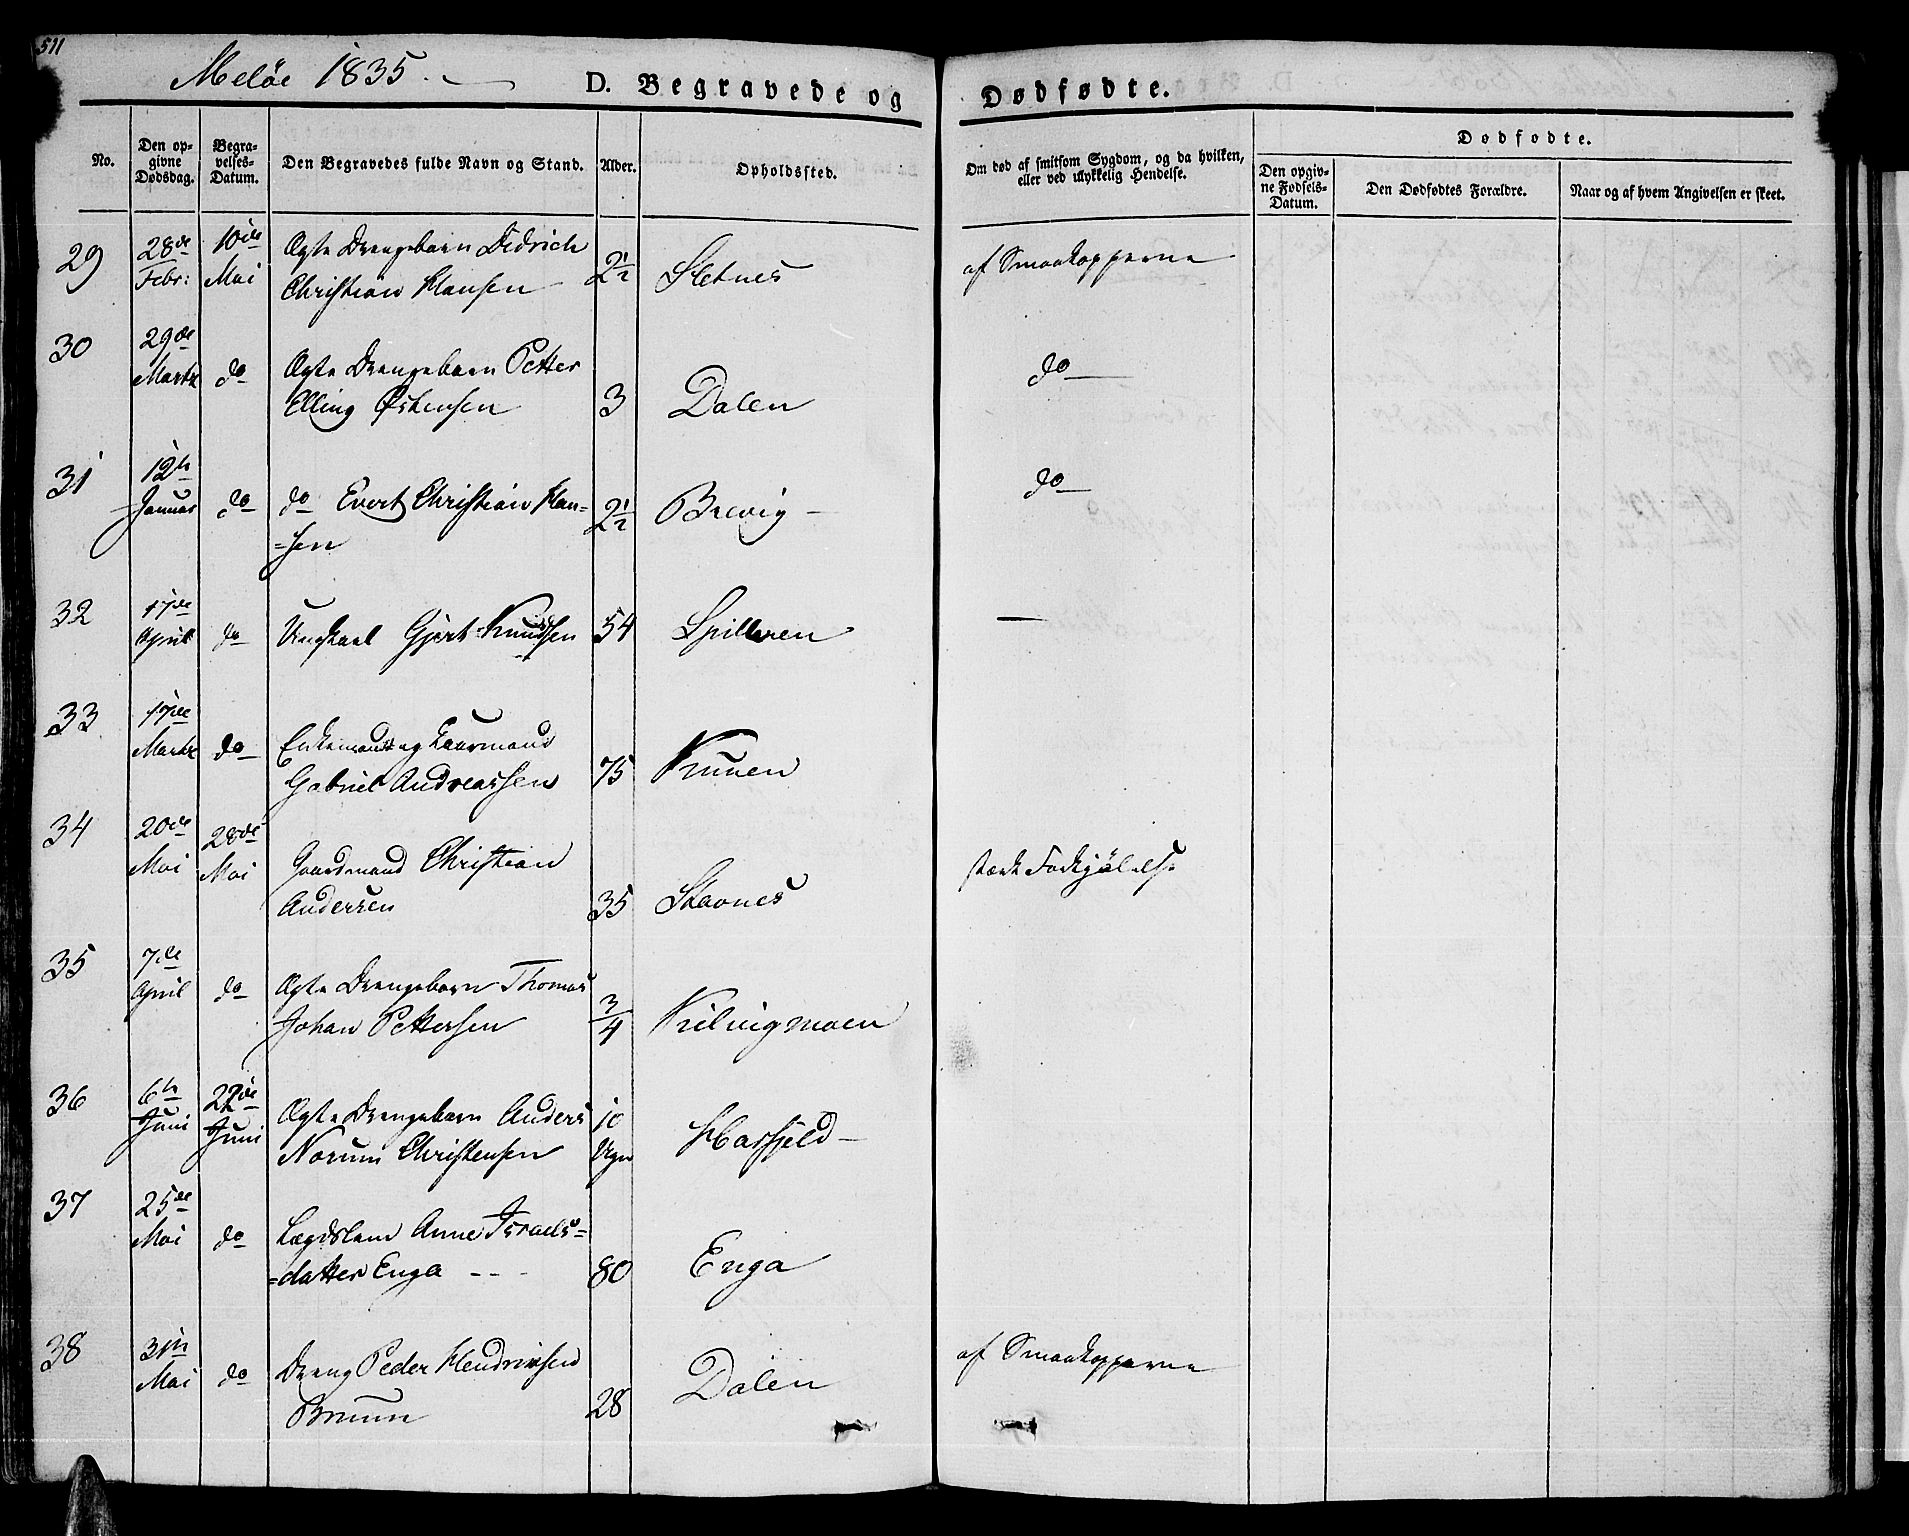 511
Meløe 1835.
D. Begravede og Dødfødte.
No.
Den opgivne Dødsdag.
Begravelses-Datum.
Den Begravedes fulde Navn og Stand.
Alder.
Opholdssted.
Om død af smitsom Sygdom, og da hvilken, eller ved ulykkelig Hendelse.
Dødfødte.
Den opgivne Fødsels-Datum.
Den Dødfødtes Forældre.
Naar og af hvem Angivelsen er skeet.
29 28de Febr: 10de Mai Ægte Drengebarn Didrich
Christian Hansen 2½ Sletnes af Smaakopperne
30 29de Martz do Ægte Drengebarn Petter
Elling Østensen 3 Dalen do
31 12te Januar do do Evert Christian Han=
=sen 2½ Brevig do
32 17de April do Ungkarl Gjert Knudsen 54 Spilderen —
33 17de Martz do Enkemand og Kaarmand
Gabriel Andreassen 75 Vruuen
34 20de Mai 28de Mai Gaardmand Christian
Andersen 35 Stavnes stærk Forkjølelse
35 7de April do Ægte Drengebarn Thomas
Johan Pettersen 3/4 Kilvigmoen
36 6te Juni 22de Juni Ægte Drengebarn Anders
Norum Christensen 10 Uger Harfjeld
37 25de Mai do Lægdslem Anne Israels=
=datter Enga 80 Enga
38 31te Mai do Dreng Peder Hendricksen
Bruun 28 Dalen af Smaakopperne